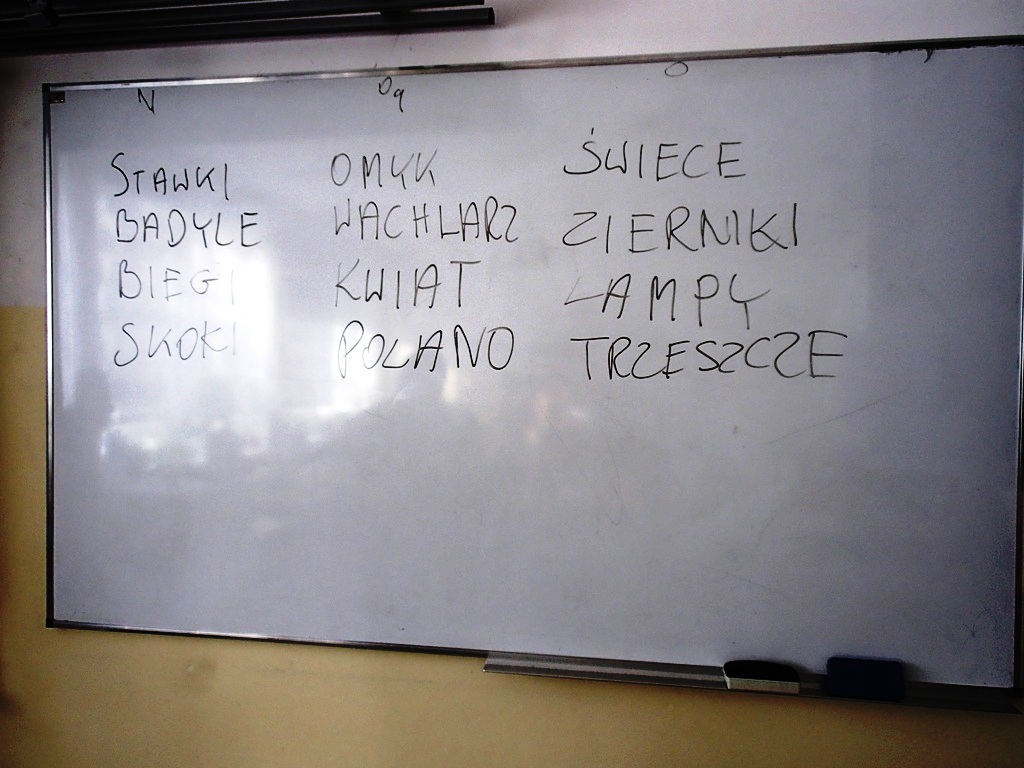 N Oq O
STAWKI OMYK ŚWIECE
BADYLE WACHLARZ ZIERNIKI
BIEGI KWIAT LAMPY
SKOKI POLANO TRZESZCZE